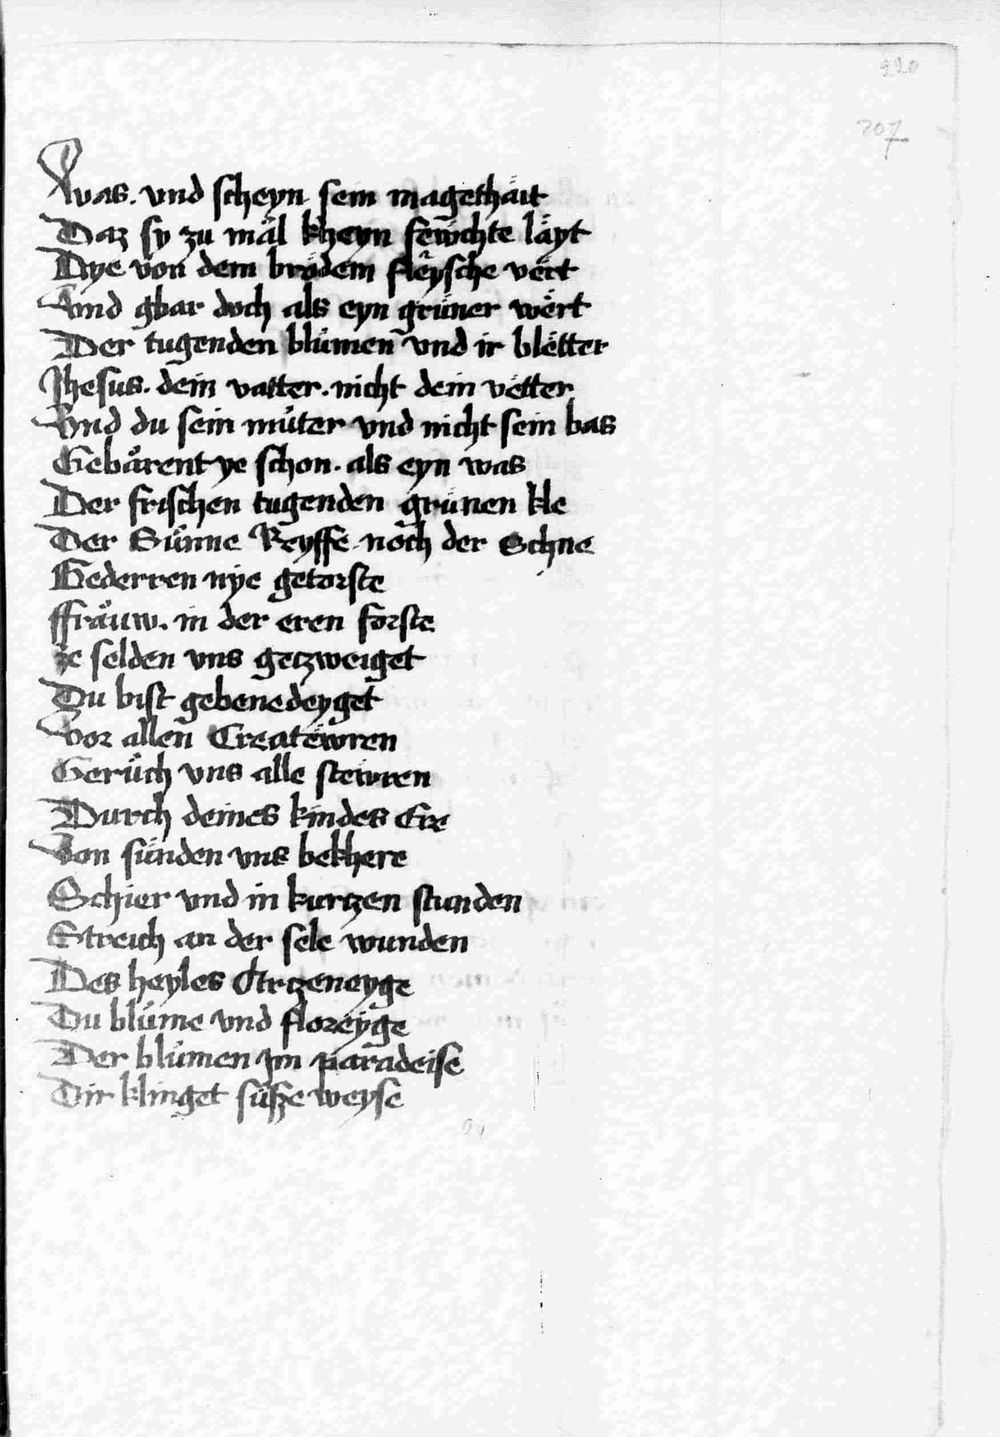 220
207
Was. vnd scheyn sein magethäit
Daz sy zu mäl kheyn fewchte läyt
Dye von dem brödem fleysche vert
Vnd gbar doch als eyn grüner wërt
Der tugenden blůmen vnd ir blëtter
Jhesus. dein vatter. nicht dein vëtter
Vnd du sein můter vnd nicht sein bas
Gebårent ye schon. als eyn was
Der frischen tugenden grünen kle
Der Sünne Reyffe noch der Schne
Gederren nye getorste
ffråuw. in der eren forste
ze selden vns getzweiget
Du bist gebenedeyget
Vor allen Creatëwren
Gerůch vns alle stewren
Durch deines kindes Ere
Von sünden vns bekhere
Schier vnd in kurtzen stunden
Streich an der sele wunden
Des heyles Ertzeneyge
Du blůme vnd floreyge
Der blůmen jm paradeise
Dir klinget süsze weyse
24